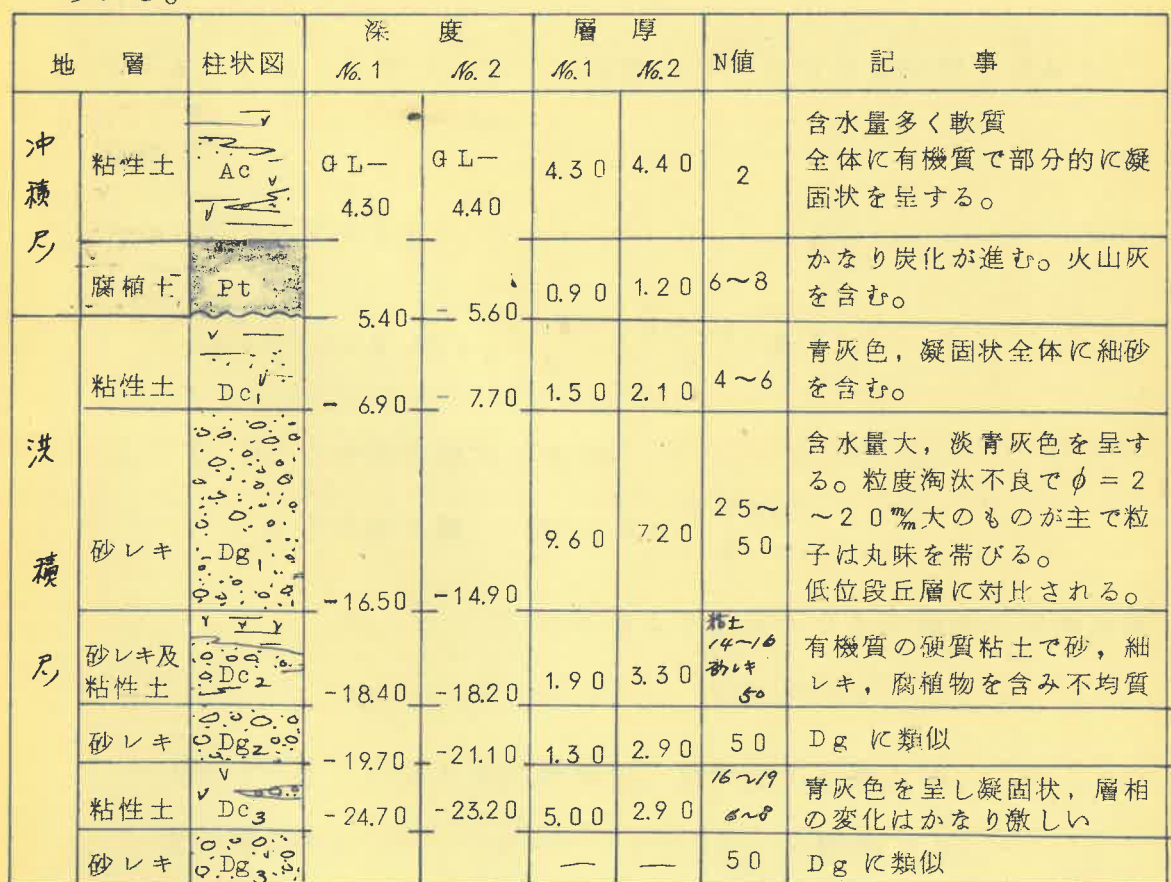 深 度 層 厚
地 層 柱状図 No.1 No.2 No.1 No.2 N値 記 事
冲積层
粘性土 Ac GL-4.30 GL-4.40 4.30 4.40 2
含水量多く軟質
全体に有機質で部分的に凝
固状を呈する。
腐植土 Pt 5.40 - 5.60 0.90 1.20 6~8
かなり炭化が進む。火山灰
を含む。
洪積层
粘性土 Dc1 - 6.90 - 7.70 1.50 2.10 4~6
青灰色,凝固状全体に細砂
を含む。
砂レキ Dg1 -16.50 -14.90 9.60 7.20 25~50
含水量大,淡青灰色を呈す
る。粒度淘汰不良でφ=2
~20m/m大のものが主で粒
子は丸味を帯びる。
低位段丘層に対比される。
砂レキ及
粘性土 Dc2 -18.40 -18.20 1.90 3.30
粘土
14~16
砂レキ
50
有機質の硬質粘土で砂,細
レキ,腐植物を含み不均質
砂レキ Dg2 -19.70 -21.10 1.30 2.90 50 Dgに類似
粘性土 Dc3 -24.70 -23.20 5.00 2.90
16~19
6~8
青灰色を呈し凝固状,層相
の変化はかなり激しい
砂レキ Dg3 — — 50 Dgに類似